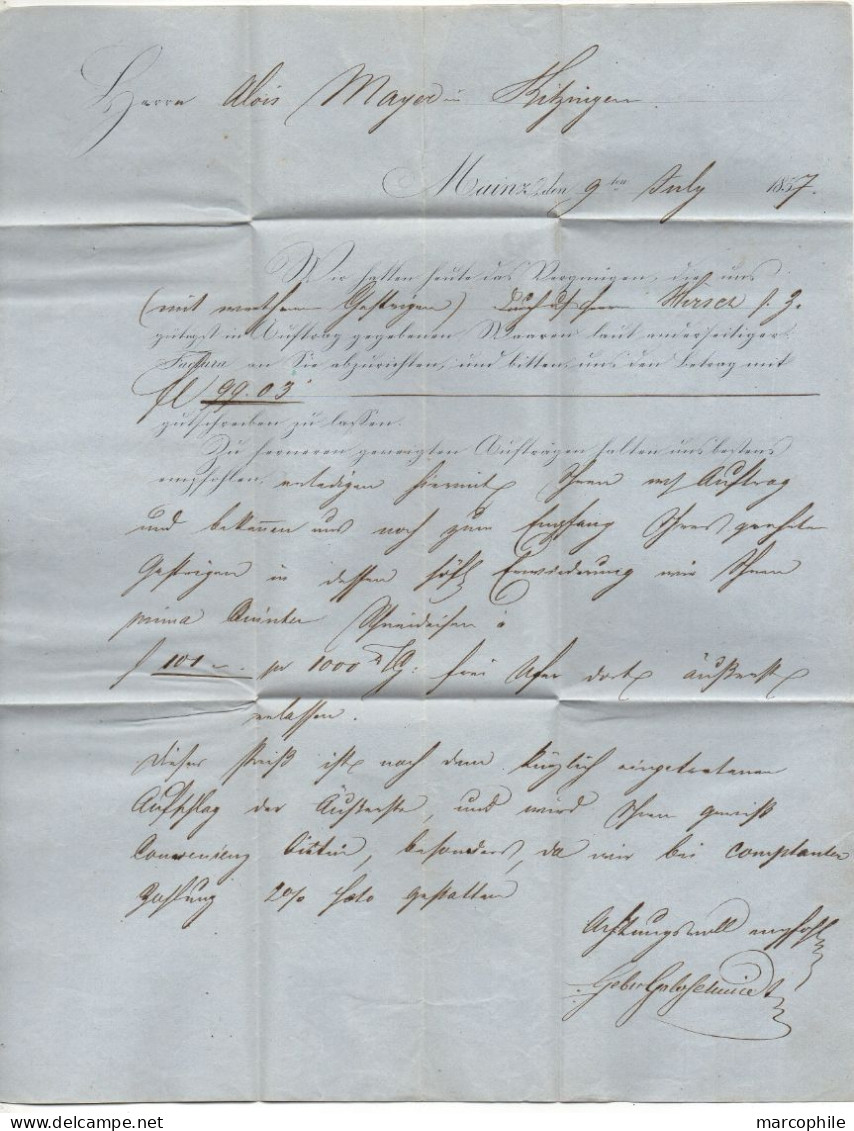 Herrn Alois Mayer in Kitzingen.
Mainz, den 9ten July 1857.
Wir hatten heute das Vergnügen, die uns
(mit werthem Gestrigen) durch Hirsch f. 3.
gütigst in Auftrag gegebenen Waaren laut anderseitiger
Factura an Sie abzurichten, und bitten, uns den Betrag mit
fl 99.03
gutschreiben zu lassen.
Zu ferneren geneigten Aufträgen halten uns bestens
empfohlen, erledigen hiermit Ihren Auftrag
und bekennen uns noch zum Empfang Ihres geehrten
Gestrigen in dessen höfl Erwiederung wir Ihnen
prima
f 101 pr 1000 frei Ufer dort äußerst
erlassen.
Dieser Preiß ist nach dem kürzlich eingetretenen
Aufschlag der Äußerste, und wird Ihnen gewiß
Convenienz bieten, besonders, da wir bei comptanter
Zahlung 2% Sconto gestatten
Achtungsvoll empfohl
Gebr Goldschmidt
marcophile